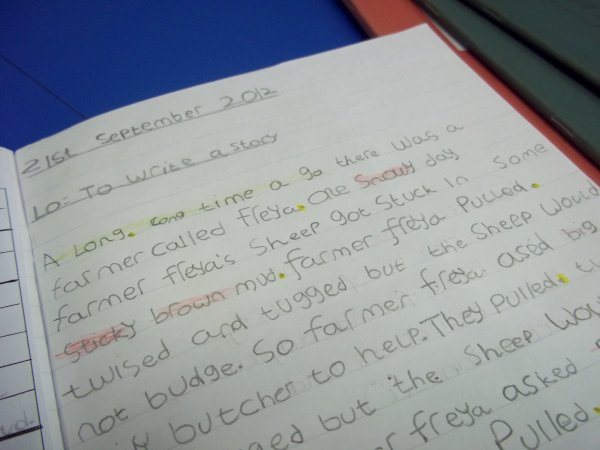 21st September 2012
LO: To write a story
A Long. Long time a go there was a
farmer called freya. One Snowy day
farmer freya's Sheep got Stuck In Some
Sticky brown mud. farmer freya Pulled.
twised and tugged but the Sheep would
not budge. So farmer freya ased big
butcher to help. They Pulled.
ged but the Sheep Wou
freya asked
Pulled.
ud.